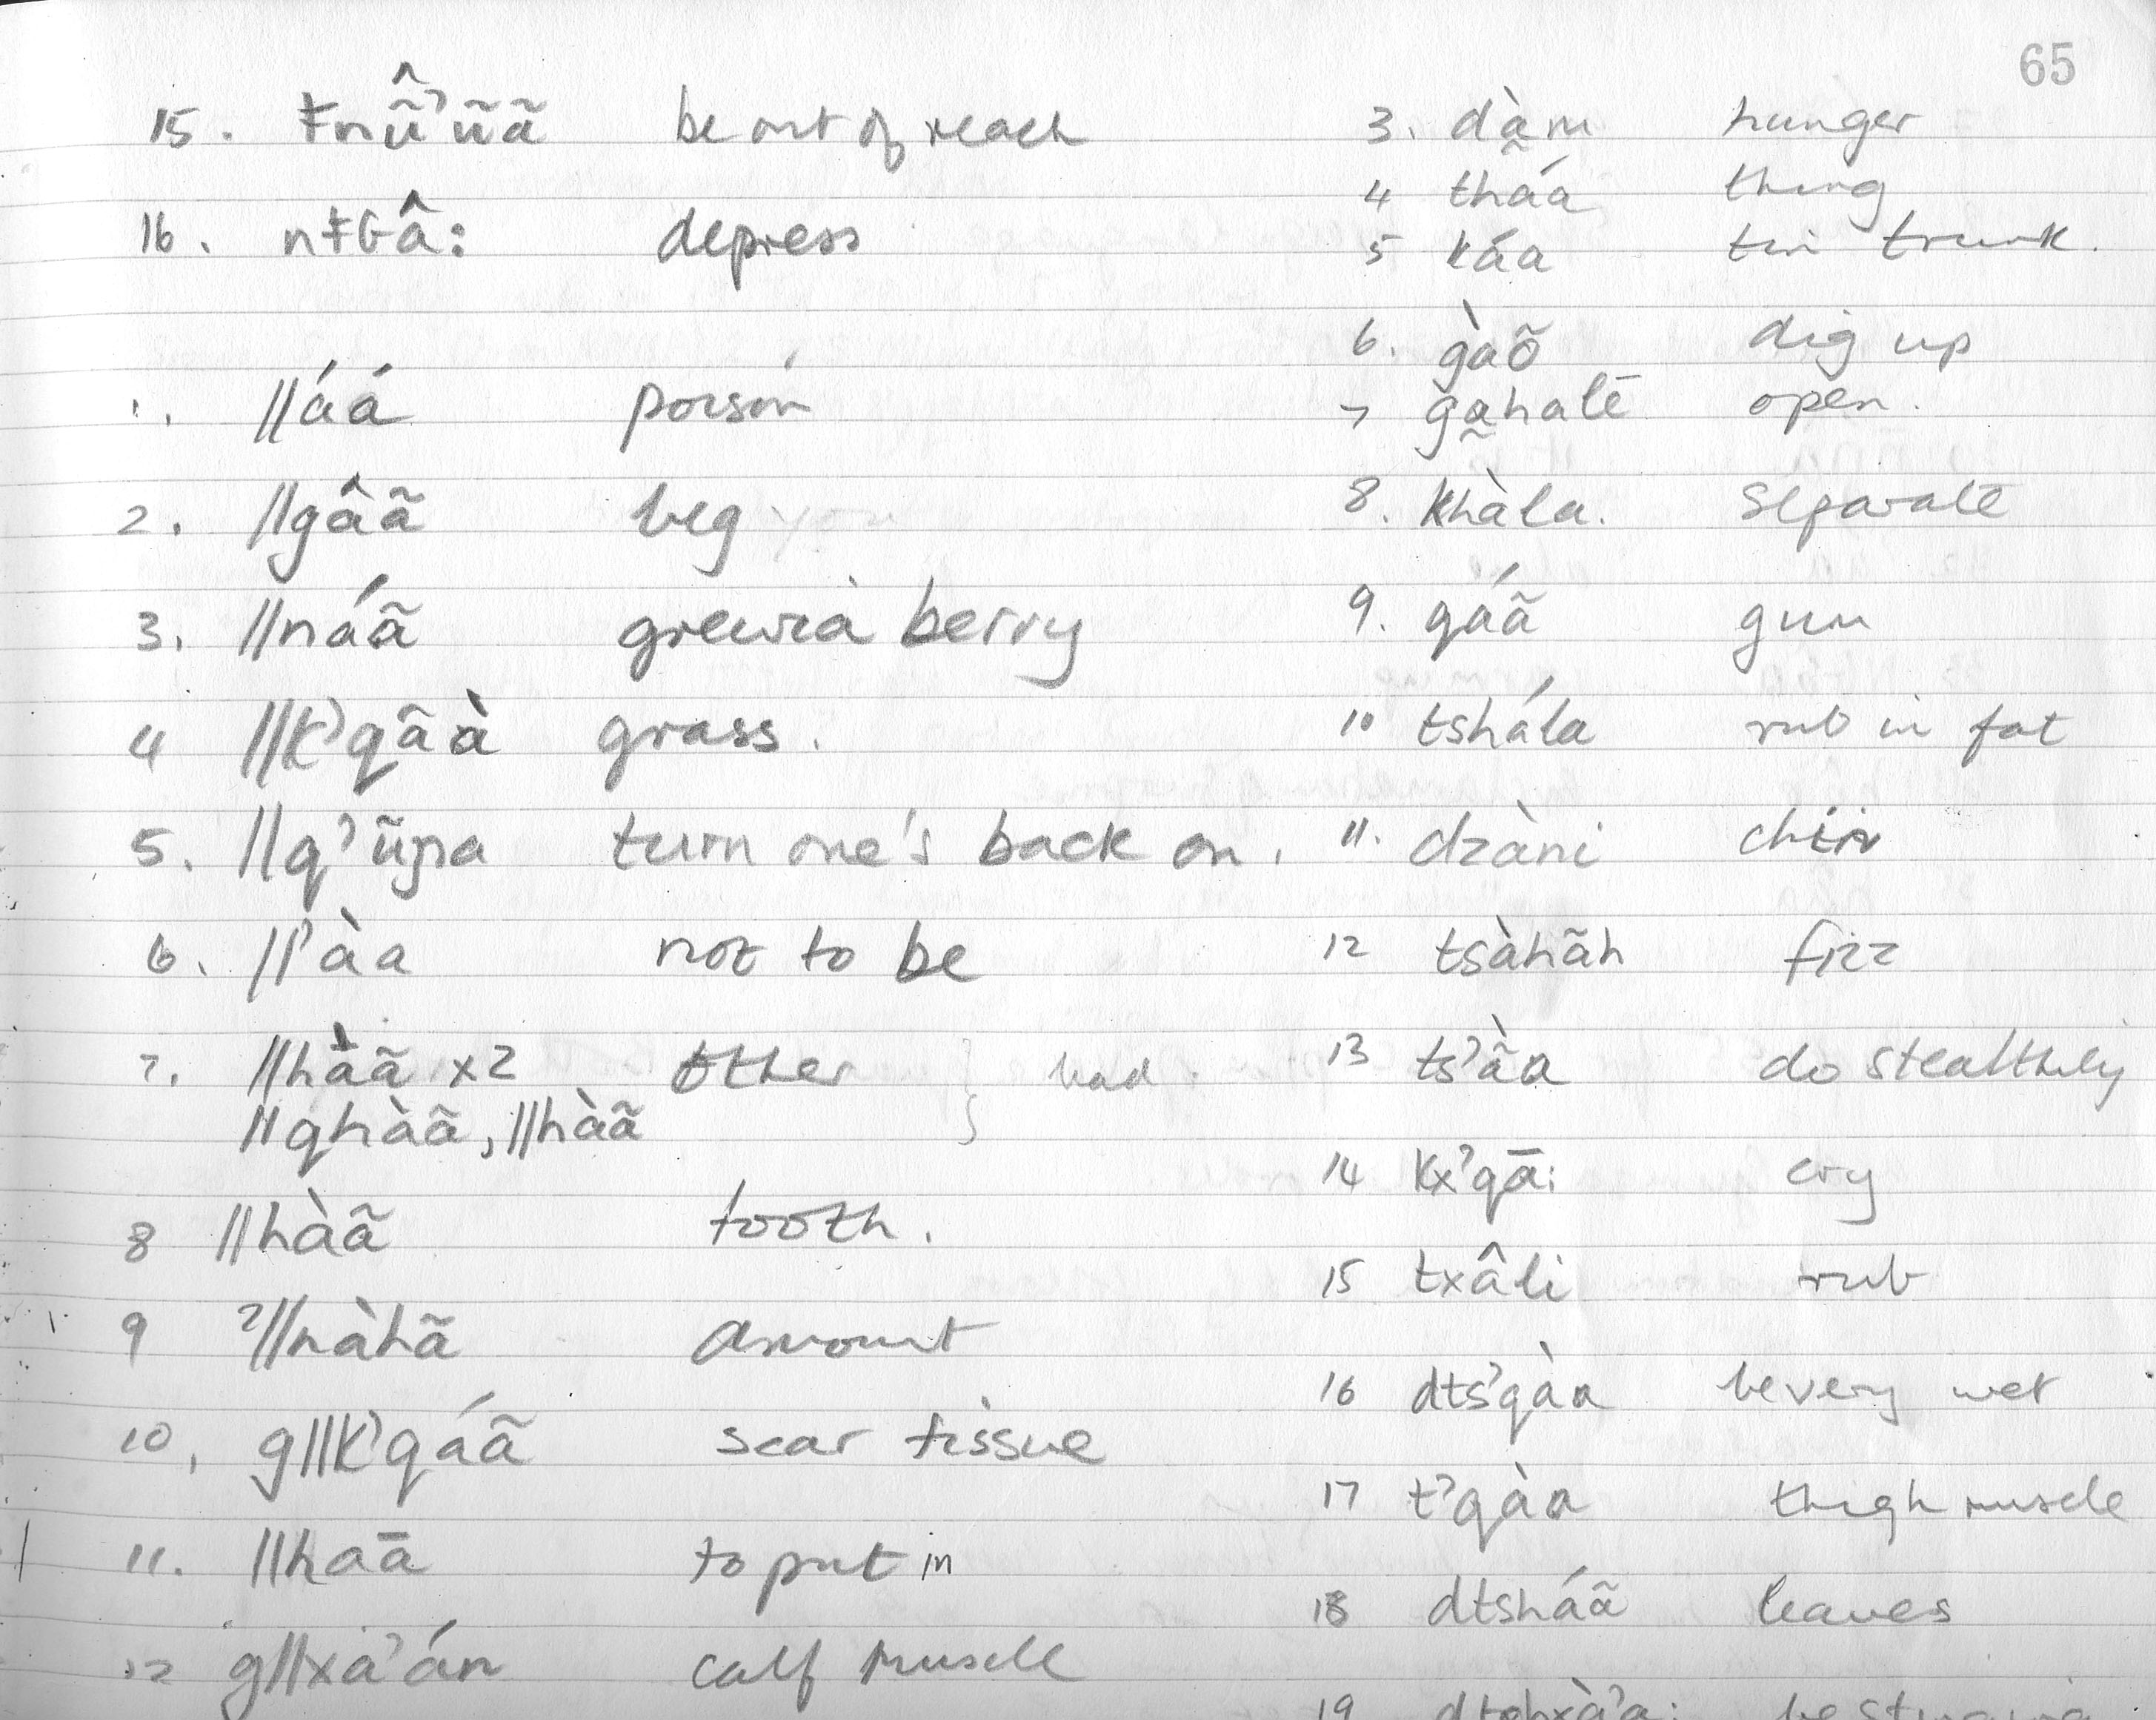 65
15. ǂnû̃ʼũã be out of reach
16. nǂɢâ: depress
1. ||áá poison
2. ||gâã beg
3. ||náã grewia berry
4 ||k'qãà grass.
5. ||qʼũɲa turn one's back on.
6. ||ʼàa not to be
7. ||hàã x2 other } bad
||qhàã, ||hàã
8 ||hàã tooth.
9 ʔ||nàhã amount
10. g||k'qáã scar tissue
11. ||haā to put in
12 g||xaʼán calf muscle
3. dà̰m hunger
4 tháa thing
5 káa tin trunk.
6. gàõ dig up
7 ga̰hate open.
8. khàla. separate
9. qáã gum
10 tshála rub in fat
11. dzàni chin
12 tsàhãh fizz
13 tsʼãa do stealthily
14 kxʼqā: cry
15 txâli rub
16 dts'qàa be very wet
17 tʼqàa thigh muscle
18 dtsháã leaves
19